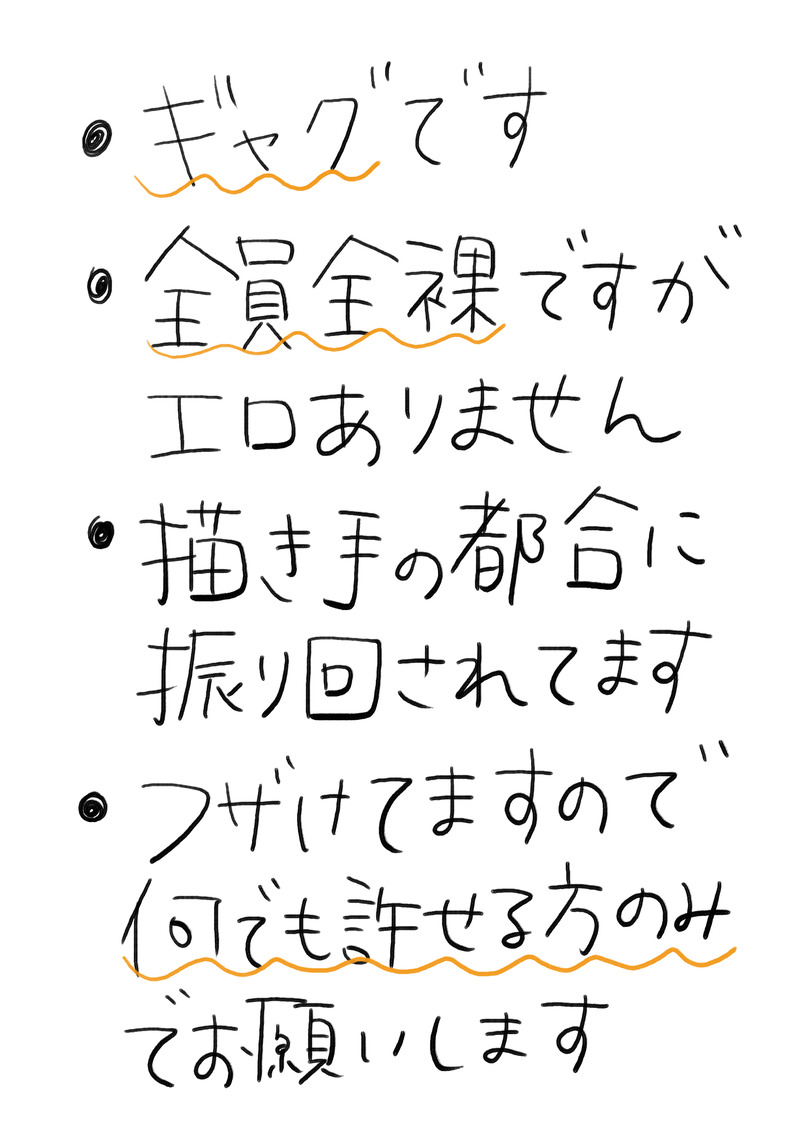 ● ギャグです
● 全員全裸ですが
エロありません
● 描き手の都合に
振り回されてます
● フザけてますので
何でも許せる方のみ
でお願いします